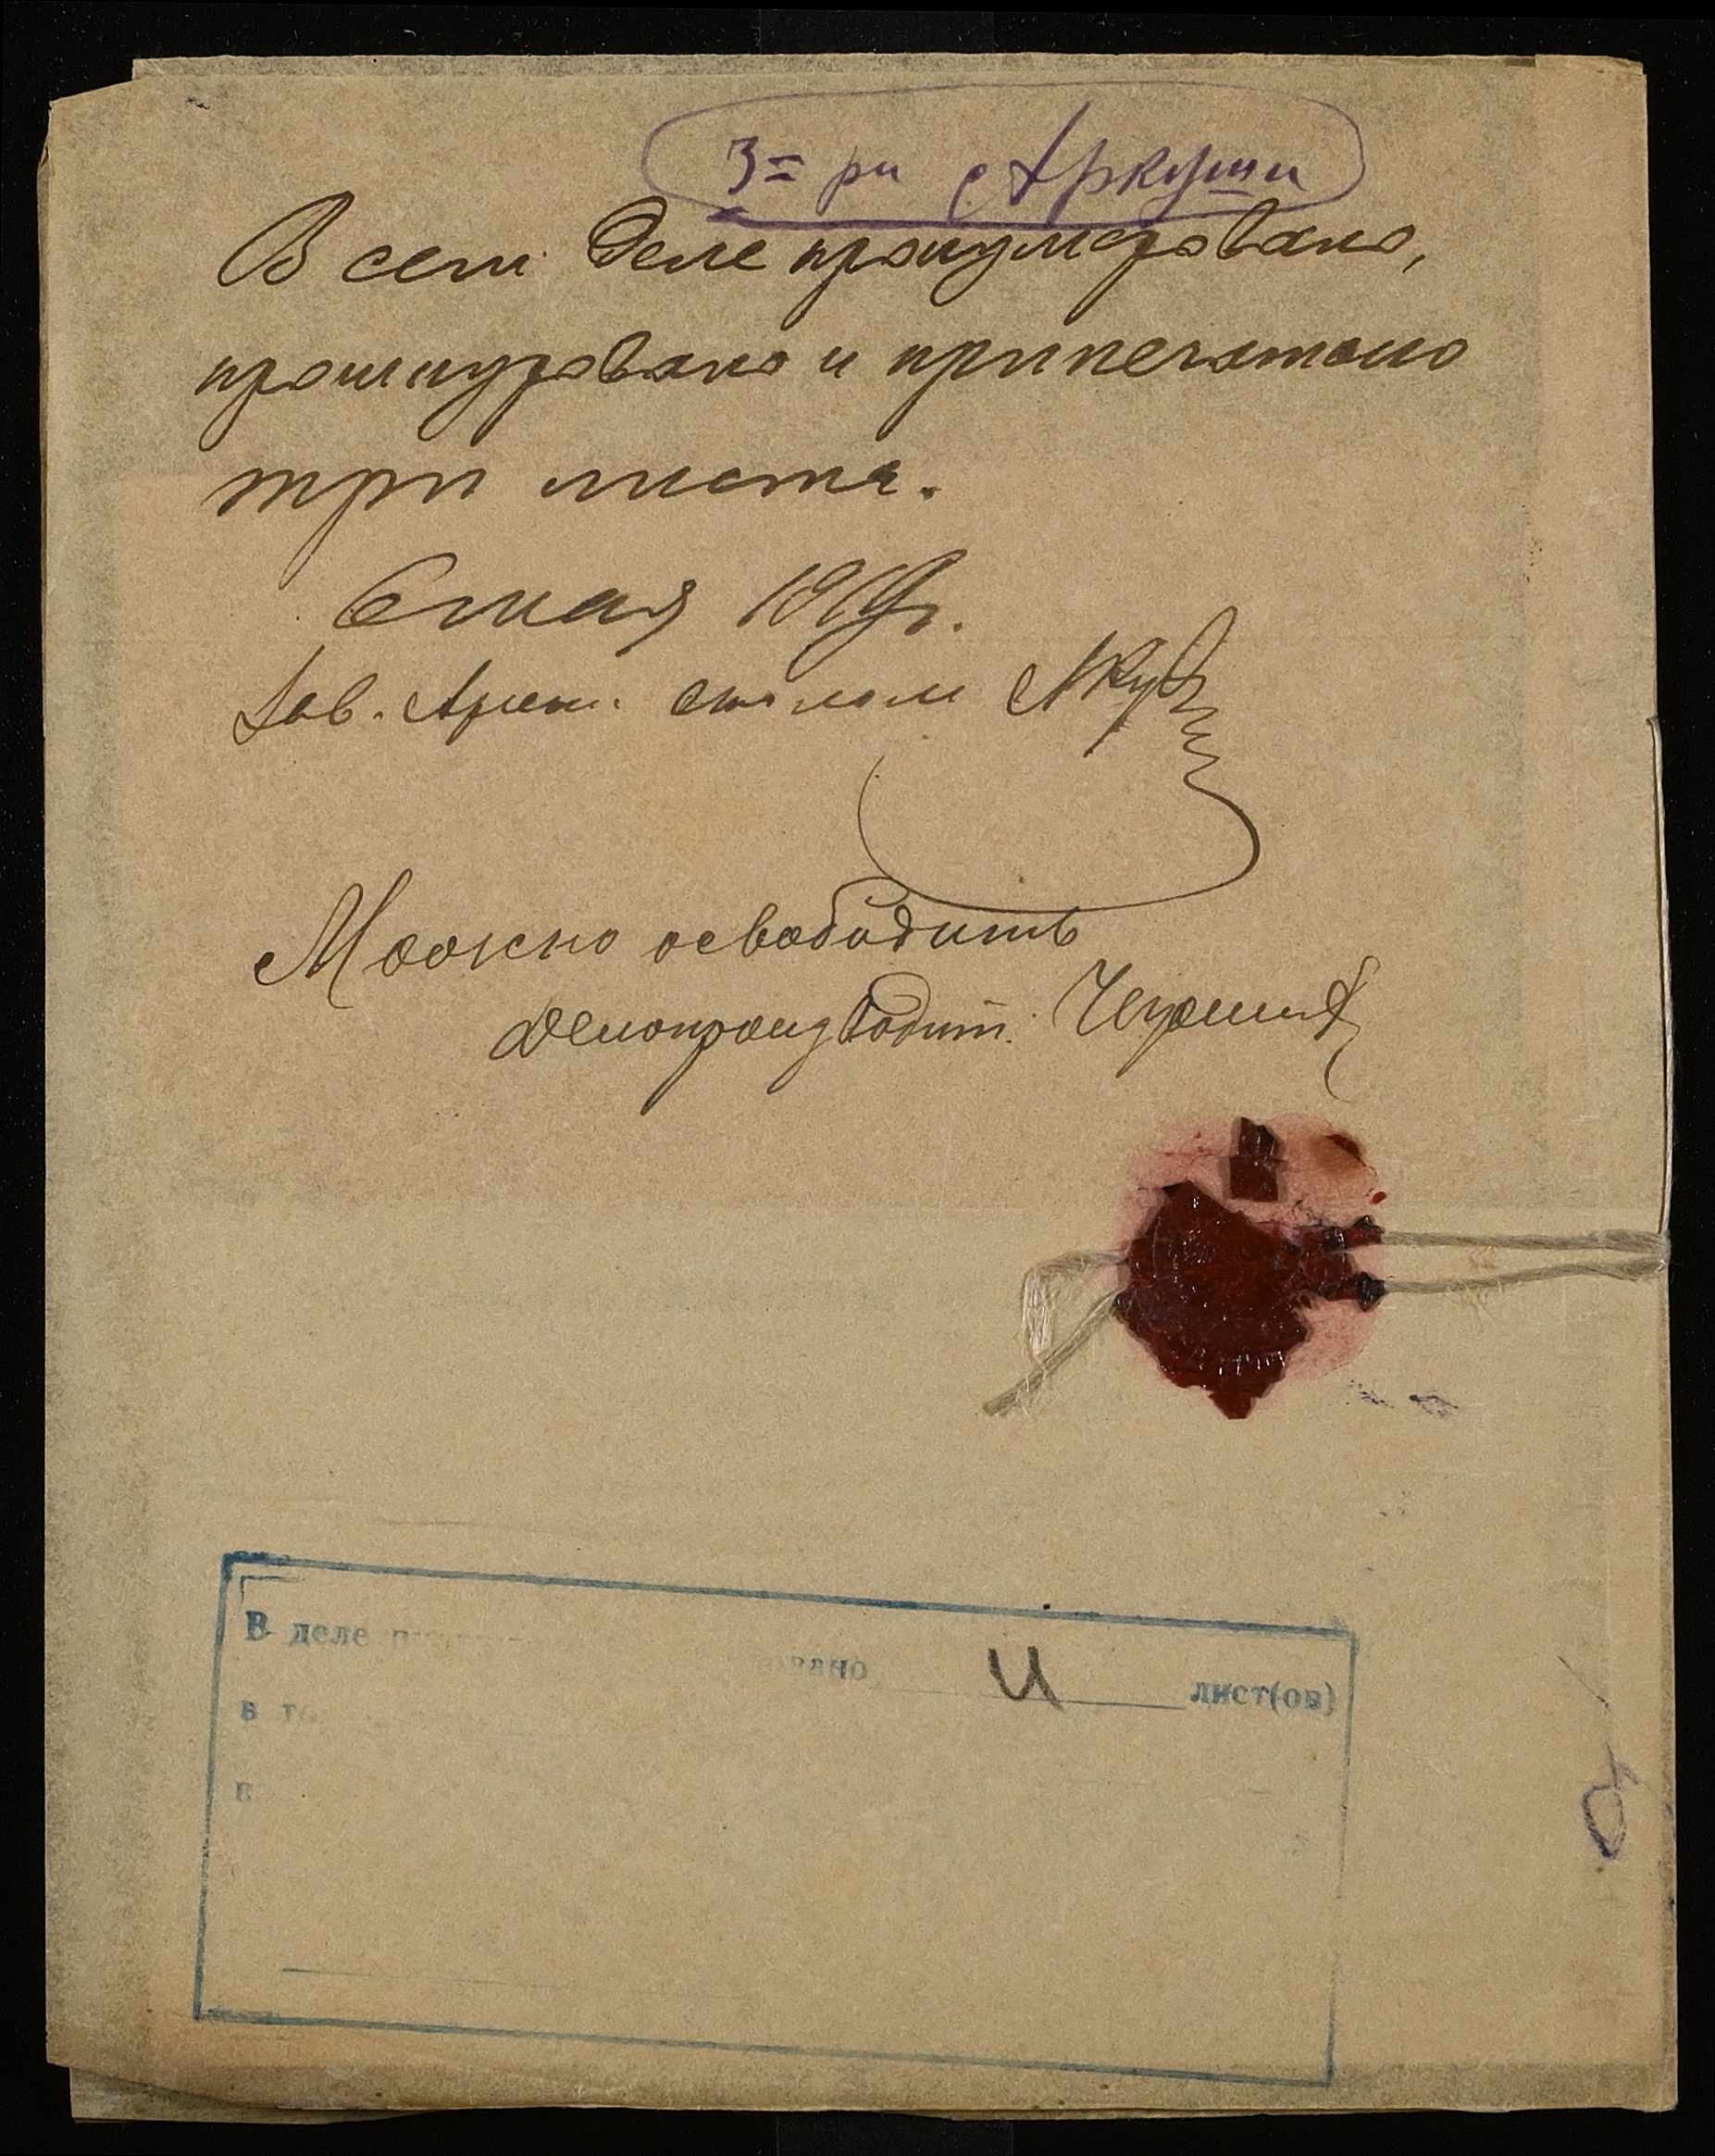 3=ри Аркуши
В сем деле пронумеровано,
прошнуровано и припечатано
три листа.
6 мая 1919г.
Зав. Арест. столом
Можно освободить
Делопроизводит.
В деле
овано и лист(ов)
в
в